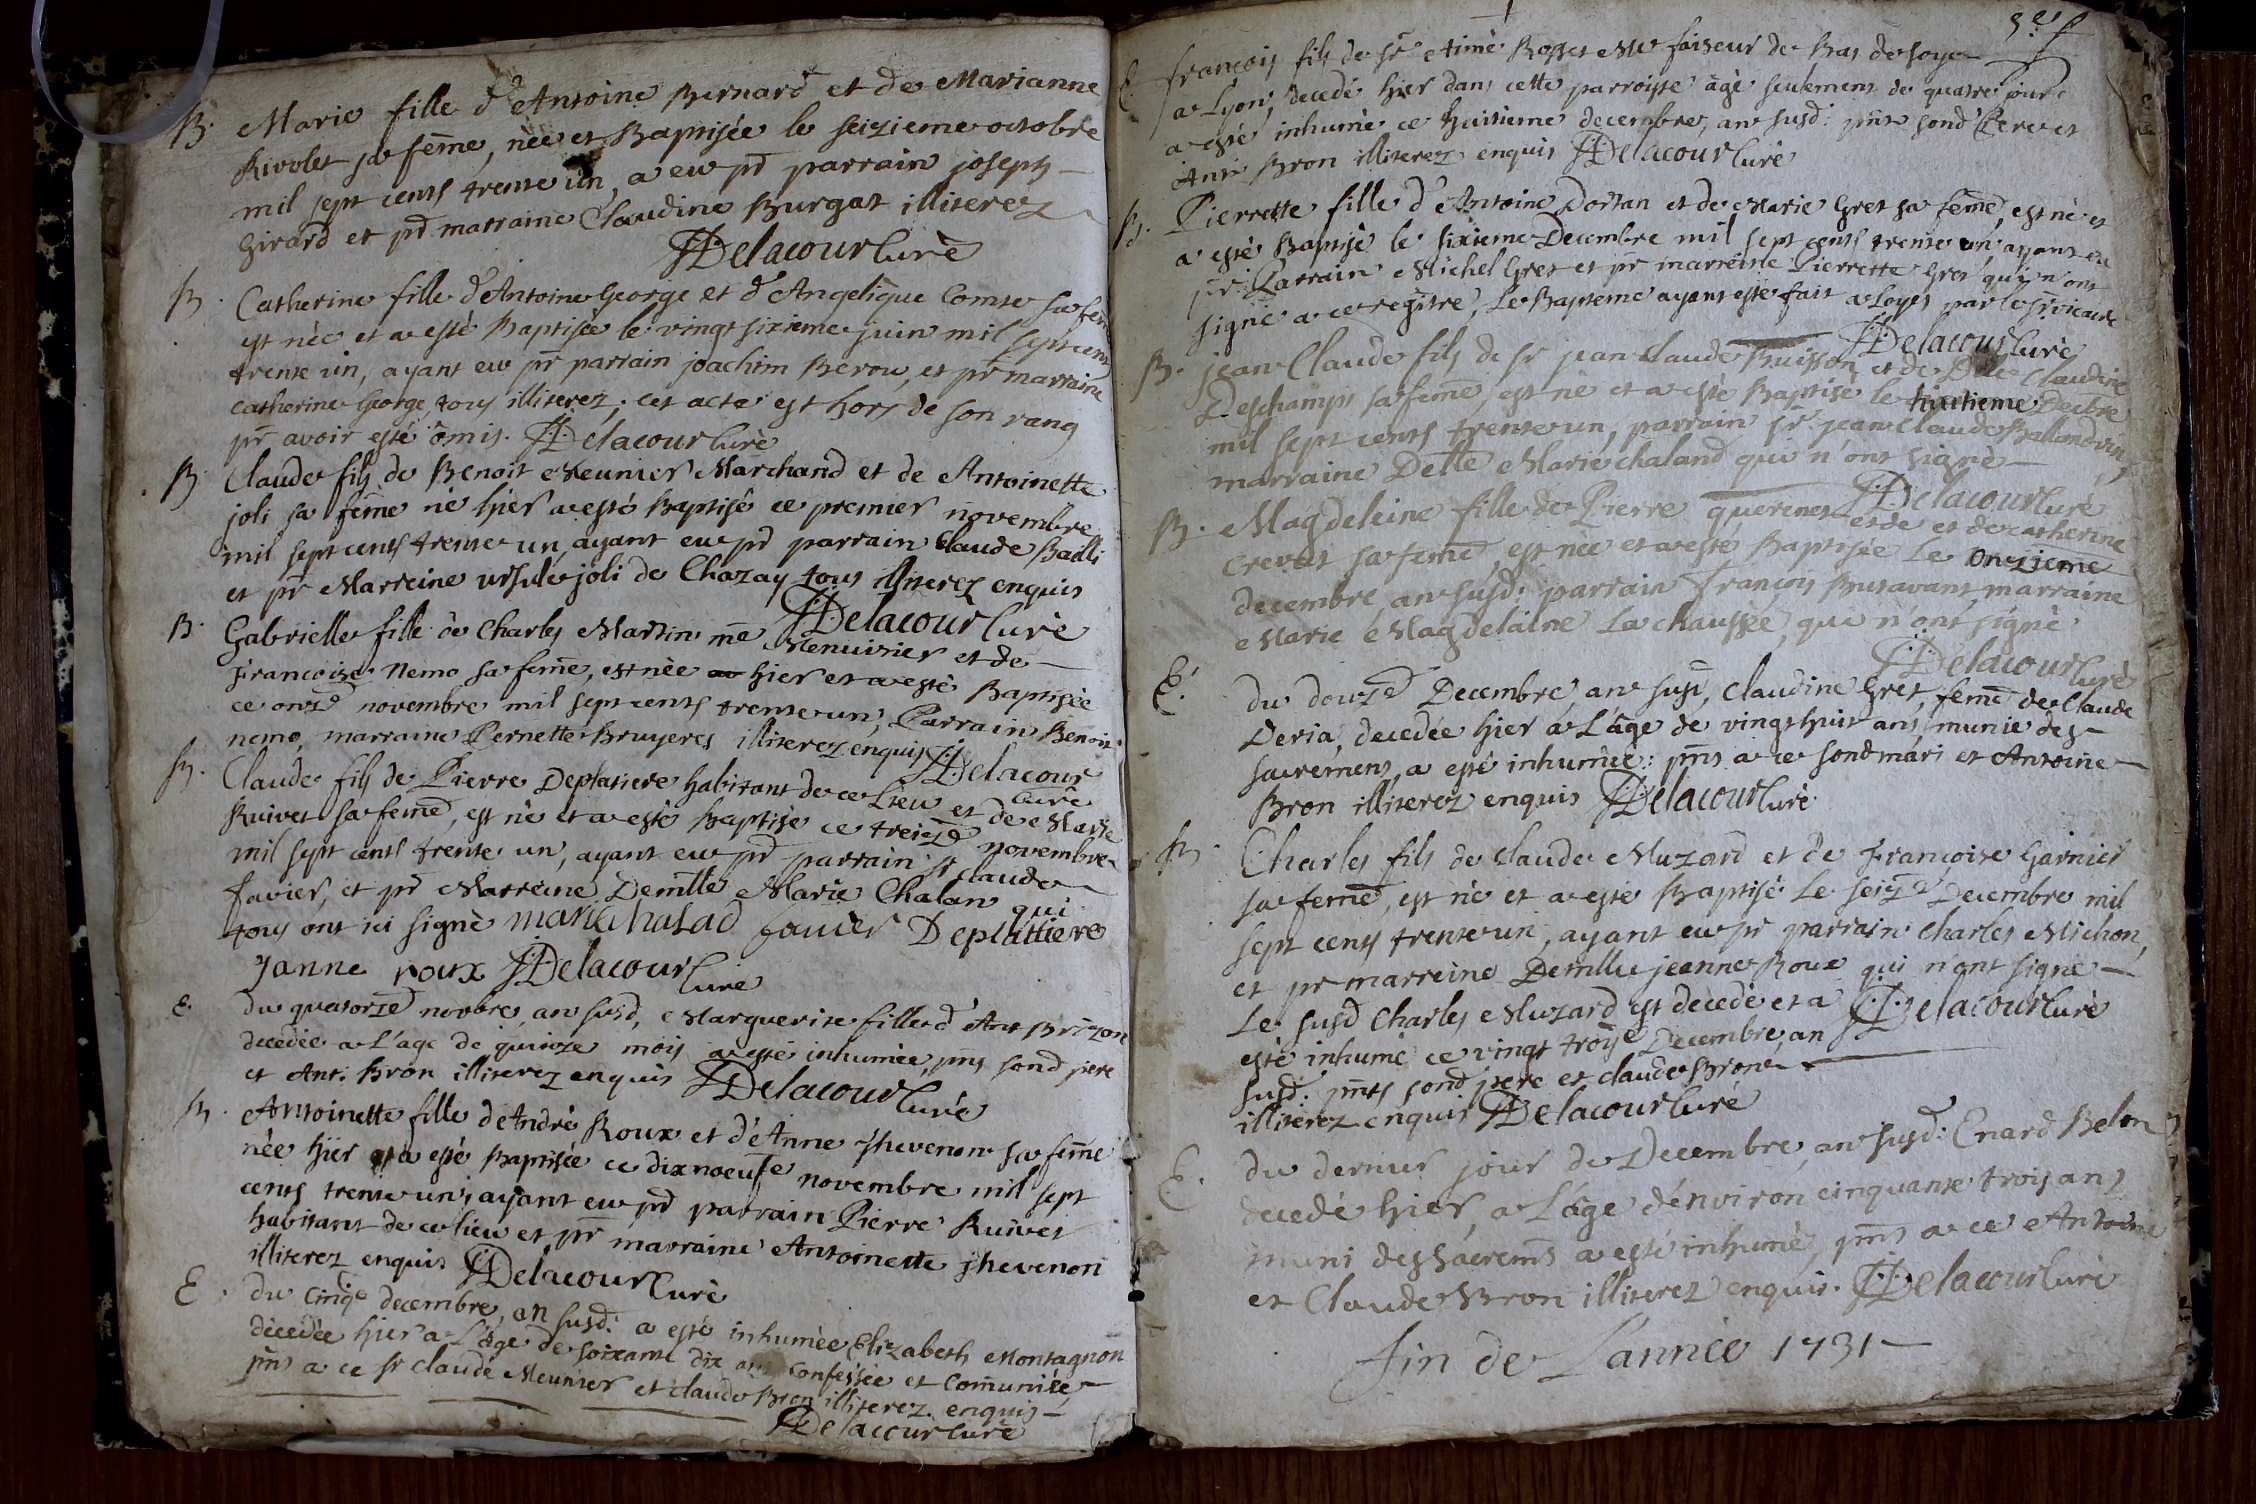 B. Marie fille d'Antoine Bernard et de Marianne
Rivolet sa fême, née et Baptisée le seizieme octobre
mil sept cents trente un, a eu pr parrain joseph
Girard et pr marraine Claudine Burgat illiterez
Delacour Curé
B. Catherine fille d'Antoine George et d'Angelique Comte sa fem
est née et a esté Baptisée le vingt sixieme juin mil sept cens
trente un, ayant eu pr parrain joachim Berou, et pr marraine
catherine George, tous illiterez; cet acte est hors de son rang
pr avoir esté omis. Delacour Curé
B. Claude fils de Benoit Meunier Marchand et de Antoinette
joli sa fême né hier a esté Baptisé ce premier novembre
mil sept cents trente un, ayant eu pr parrain Claude Bailli
et pr Marreine ursule joli de Chazay tous illiterez enquis
Delacour Curé
B. Gabrielle fille de Charles Martin me Menuisier et de
Françoise Nemo sa feme, est née hier et a esté Baptisée
ce onze novembre mil sept cents trente un, Parrain Benoit
nemo, marraine Pernette Bruyeres illiterez enquis Delacour
Curé
B. Claude fils de Pierre Deplatiere habitant de ce Lieu et de Marie
Ruivet sa feme, est né et a esté Baptisé ce treize novembre
mil sept cents trente un, ayant eu pr parrain sr claude
favier, et pr Marreine Demlle Marie Chalan qui
tous ont ici signé marie chalad favier Deplattiere
Janne roux Delacour Curé
E. du quatorze novbre, an susd, Marguerite fille d'Ant Brizon
decedée a L'age de quinze mois a esté inhumée, pnts sond pere
et Ant. Bron illiterez enquis Delacour Curé
B. Antoinette fille d'André Roux et d'Anne thevenon sa feme
née hier et a esté Baptisée ce dix noeufe novembre mil sept
cents trente un, ayant eu pr parrain Pierre Ruivet
habitant de ce lieu et pr marraine Antoinette thevenon
illiterez enquis Delacour Curé
E. du cinqe decembre, an susd: a esté inhumée Elizabeth Montagnon
decedée hier a L'age de soixante dix ans confessée et comuniée,
pnts a ce sr claude Meunier et claude Bron illiterez enquis
Delacour Curé
E. françois fils de sr Aimé Rosset Me faiseur de Bas de soye
a Lyon, decedé hier dans cette parroisse agé seulement de quatre jours
a esté inhumé ce huitieme decembre, an susd: pnts sond Pere et
Ant Bron illiterez enquis Delacour Curé
B. Pierrette fille d'Antoine Dortan et de Marie Gret sa feme, est né et
a esté Baptisé le sixieme Decembre mil sept cents trente un, ayant eu
pr Parrain Michel Gret et pr marreine Pierrette Gret qui n'ont
signé a ce regitre, Le Bapteme ayant esté fait a Loyes par le sr vicaire
Delacour Curé
B. jean Claude fils de sr jean claude Buisson et de Dlle Claudine
Deschamps sa feme, est né et a esté Baptisé le huitieme Decbre
mil sept cents trente un, parrain sr jean Claude Ballandrin,
marraine Delle Marie chaland qui n'ont signé
Delacour Curé
B. Magdeleine fille de Pierre querenet et de et de catherine
Crevat sa feme, est née et a esté Baptisée Le onzieme
decembre, an susd: parrain françois Butavant, marraine
Marie Magdelaine La chaussée, qui n'ont signé
Delacour Curé
E. du douze Decembre, an susd, Claudine Gret, feme de Claude
Deria, decedée hier a L'age de vingt huit ans, munie des
sacremens, a esté inhumée: pnts a ce sond mari et Antoine
Bron illiterez enquis Delacour Curé
B. Charles fils de claude Muzard et de françoise Garnier
sa feme, est né et a esté Baptisé Le seize Decembre mil
sept cents trente un, ayant eu pr parrain charles Michon,
et pr marreine Demlle jeanne Roux qui n'ont signé
Le susd Charles Muzard est decedé et a Delacour Curé
esté inhumé ce vingt troise Decembre, an
susd: pnts sond pere et claude Bron
illiterez enquis Delacour Curé
E. du dernier jour de Decembre, an susd: Enard Belon
decedé hier, a L'age d'environ cinquante trois ans
muni des sacremts a esté inhumé, pnts a ce Antoine
et Claude Bron illiterez enquis. Delacour Curé
fin de L'année 1731